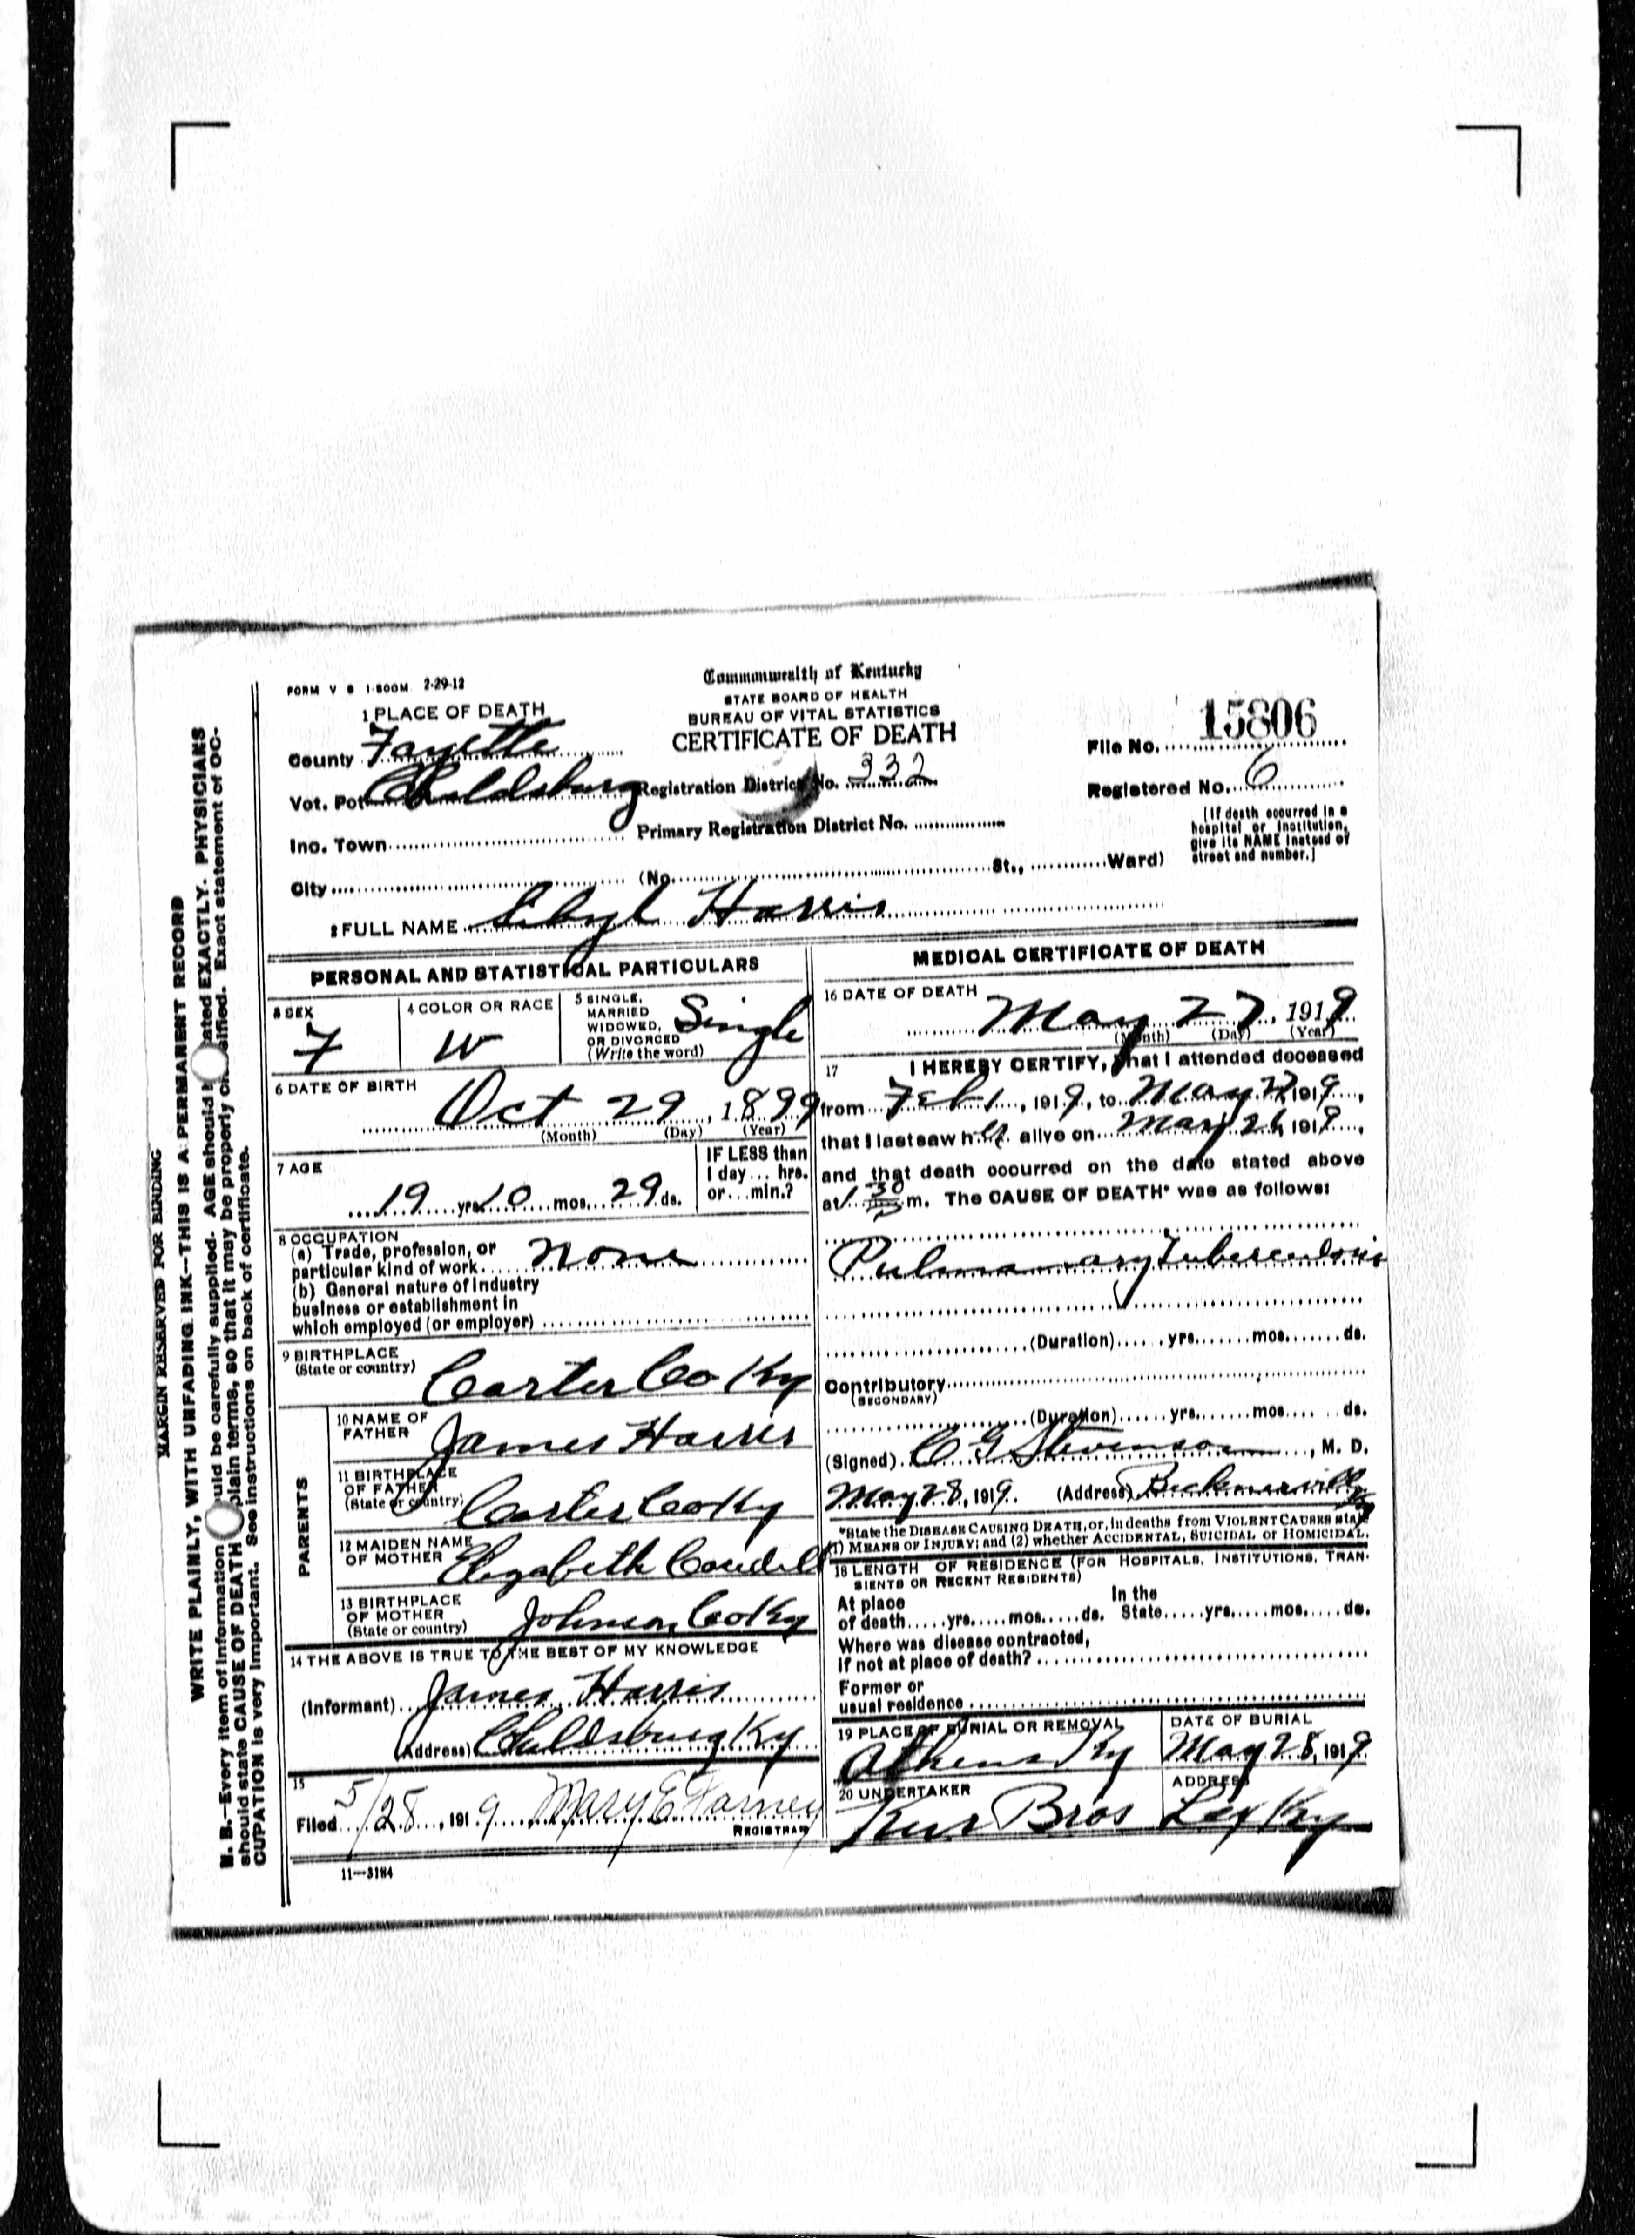 FORM V S 1-500M 2-29-12
Commonwealth of Kentucky
STATE BOARD OF HEALTH
BUREAU OF VITAL STATISTICS
CERTIFICATE OF DEATH
1 PLACE OF DEATH
County Fayette
Vot. Pct Childsburg Registration District No. 332
Inc. Town Primary Registration District No.
City (No. St., Ward)
File No. 15806
Registered No. 6
[If death occurred in a
hospital or institution,
give its NAME instead of
street and number.]
2 FULL NAME Sibyl Harris
PERSONAL AND STATISTICAL PARTICULARS
3 SEX
F
4 COLOR OR RACE
W
5 SINGLE,
MARRIED
WIDOWED,
OR DIVORCED
(Write the word)
Single
6 DATE OF BIRTH
Oct 29, 1899
(Month) (Day) (Year)
7 AGE
19 yrs 10 mos. 29 ds.
IF LESS than
1 day ... hrs.
or ... min.?
8 OCCUPATION
(a) Trade, profession, or
particular kind of work None
(b) General nature of industry
business or establishment in
which employed (or employer)
9 BIRTHPLACE
(State or country)
Carter Co Ky
PARENTS
10 NAME OF
FATHER
James Harris
11 BIRTHPLACE
OF FATHER
(State or country)
Carter Co Ky
12 MAIDEN NAME
OF MOTHER
Elizabeth Caudell
13 BIRTHPLACE
OF MOTHER
(State or country)
Johnson Co Ky
14 THE ABOVE IS TRUE TO THE BEST OF MY KNOWLEDGE
(Informant) James Harris
(Address) Childsburg Ky
15
Filed 5/28, 1919 Mary E Varney
REGISTRAR
11—3184
MEDICAL CERTIFICATE OF DEATH
16 DATE OF DEATH
May 27, 1919
(Month) (Day) (Year)
17 I HEREBY CERTIFY, that I attended deceased
from Feb 1, 1919, to May 27 1919,
that I last saw her alive on May 26, 1919,
and that death occurred on the date stated above
at 1 30 P m. The CAUSE OF DEATH* was as follows:
Pulmonary Tuberculosis
(Duration) yrs. mos. ds.
Contributory
(SECONDARY)
(Duration) yrs. mos. ds.
(Signed) C G Stevenson, M. D.
May 28, 1919. (Address) Becknerville Ky
*State the DISEASE CAUSING DEATH, or, in deaths from VIOLENT CAUSES state
(1) MEANS OF INJURY; and (2) whether ACCIDENTAL, SUICIDAL or HOMICIDAL.
18 LENGTH OF RESIDENCE (FOR HOSPITALS, INSTITUTIONS, TRAN-
SIENTS OR RECENT RESIDENTS)
At place In the
of death yrs. mos. ds. State yrs. mos. ds.
Where was disease contracted,
if not at place of death?
Former or
usual residence
19 PLACE OF BURIAL OR REMOVAL
Athens Ky
DATE OF BURIAL
May 28, 1919
20 UNDERTAKER
Kerr Bros
ADDRESS
Lex Ky
MARGIN RESERVED FOR BINDING
WRITE PLAINLY, WITH UNFADING INK—THIS IS A PERMANENT RECORD
N. B.—Every item of information should be carefully supplied. AGE should be stated EXACTLY. PHYSICIANS
should state CAUSE OF DEATH in plain terms, so that it may be properly classified. Exact statement of OC-
CUPATION is very important. See instructions on back of certificate.